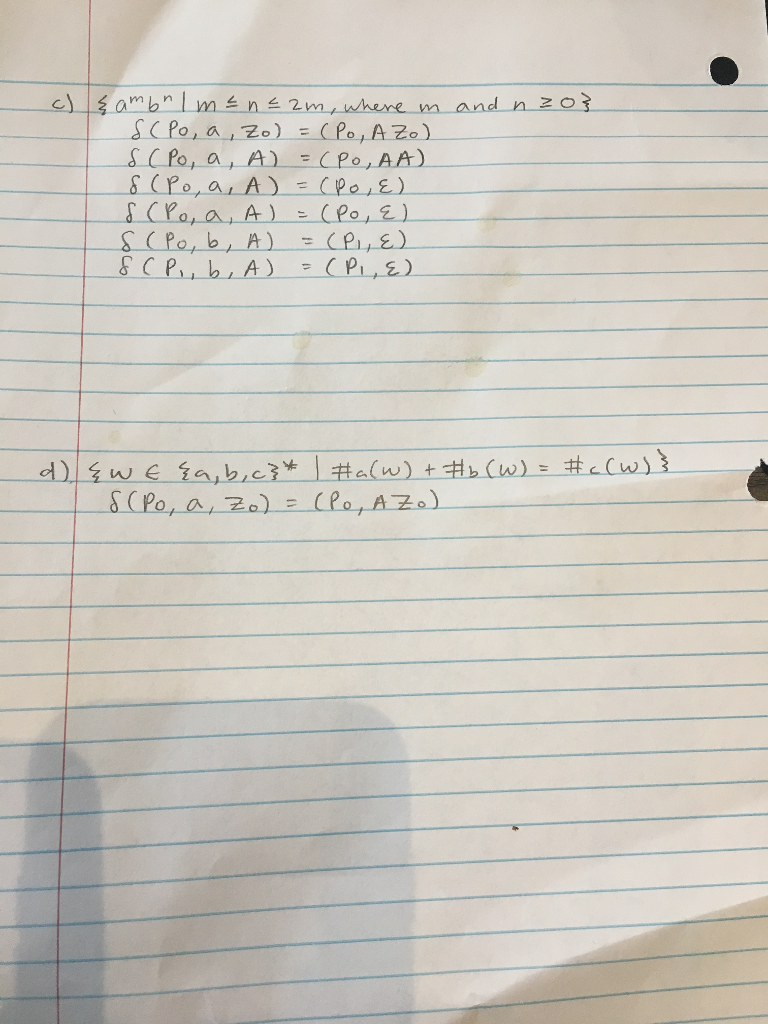 c) {aᵐbⁿ | m ≤ n ≤ 2m, where m and n ≥ 0}
δ(P₀, a, Z₀) = (P₀, AZ₀)
δ(P₀, a, A) = (P₀, AA)
δ(P₀, a, A) = (P₀, ε)
δ(P₀, a, A) = (P₀, ε)
δ(P₀, b, A) = (P₁, ε)
δ(P₁, b, A) = (P₁, ε)
d) {w ∈ {a,b,c}* | #a(w) + #b(w) = #c(w)}
δ(P₀, a, Z₀) = (P₀, AZ₀)